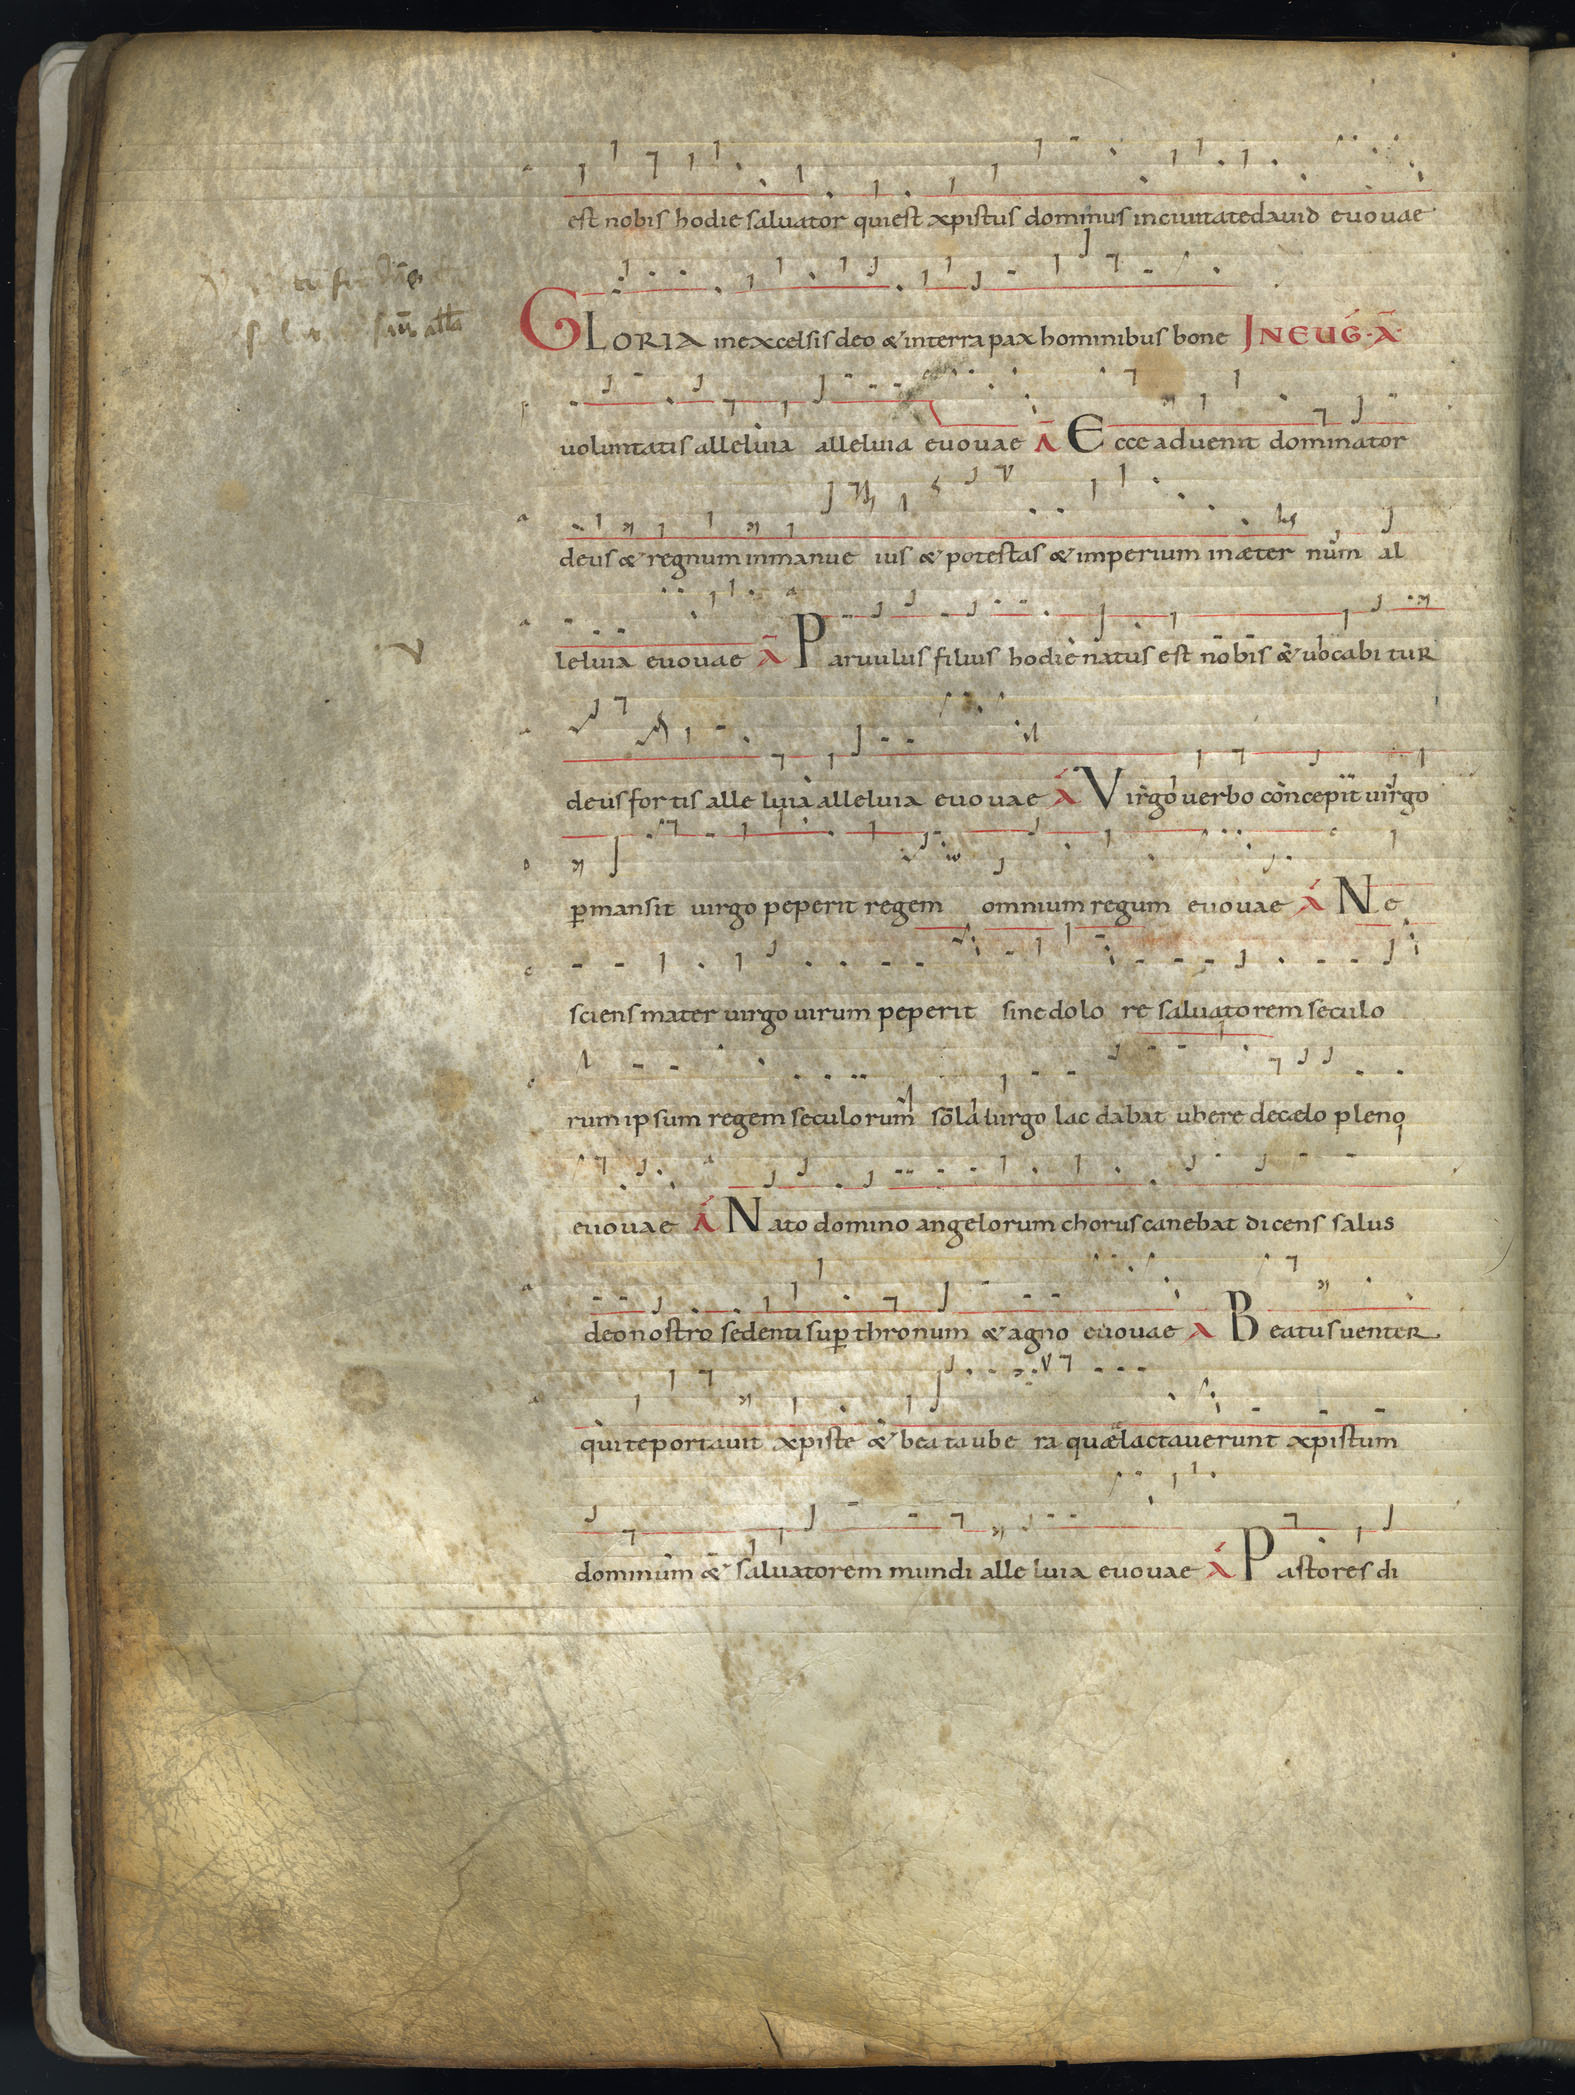 est nobis hodie saluator qui est xpistus dominus in ciuitate dauid euouae
GLORIA in excelsis deo & in terra pax hominibus bone IN EUG· A
uoluntatis alleluia alleluia euouae A Ecce aduenit dominator
deus & regnum in manu e ius & potestas & imperium in æter num al
leluia euouae A Paruulus filius hodie natus est nobis & uocabitur
deus fortis alleluia alleluia euouae A Virgo uerbo concepit uirgo
pmansit uirgo peperit regem omnium regum euouae A Ne
sciens mater uirgo uirum peperit sine dolo re saluatorem seculo
rum ipsum regem seculorum sola uirgo lac dabat ubere de cælo pleno
euouae A Nato domino angelorum chorus canebat dicens salus
deo nostro sedenti sup thronum & agno euouae A Beatus uenter
qui te portauit xpiste & beata ube ra quæ lactauerunt xpistum
dominum & saluatorem mundi alleluia euouae A Pastores di